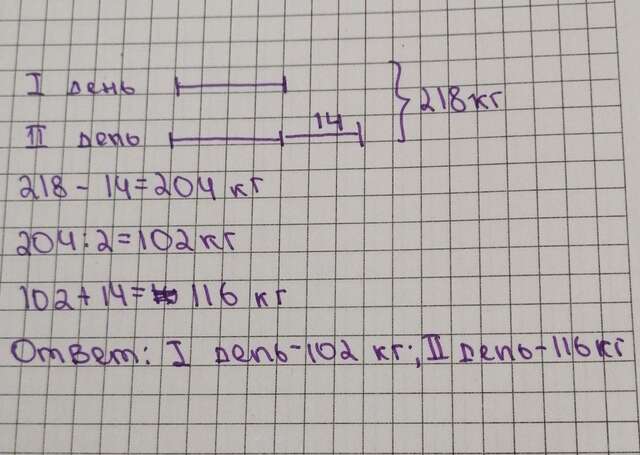 I день
218 кг
14
II день
218 - 14 = 204 кг
204 : 2 = 102 кг
102 + 14 = 116 кг
Ответ: I день - 102 кг; II день - 116 кг